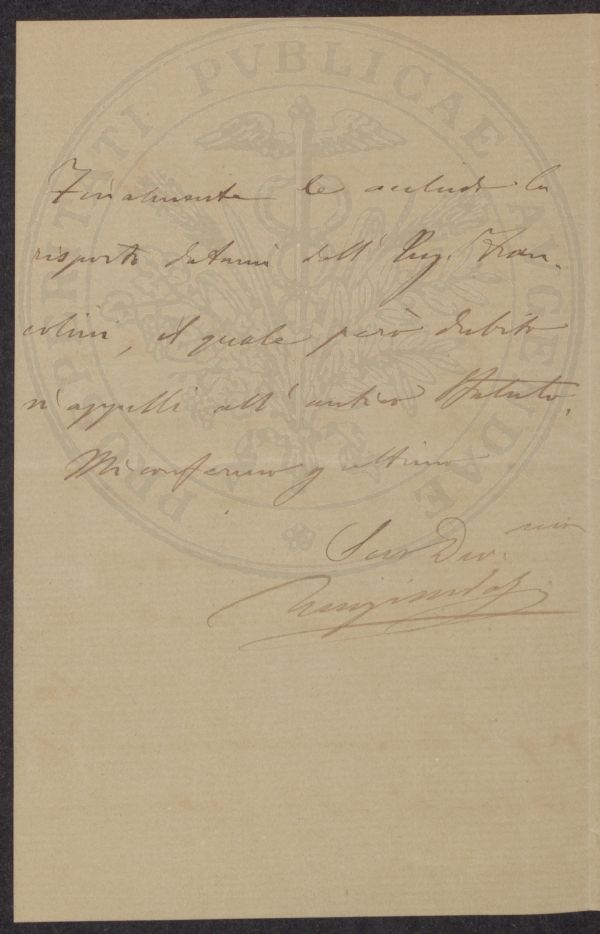 PRO VERITATI PVBLICAE AVGENDAE
Finalmente le accludo la
risposta datami dall' Ing. Fran-
colini, il quale però dubito
s'appelli all' antico Statuto.
Mi confermo
Suo Dev.mo